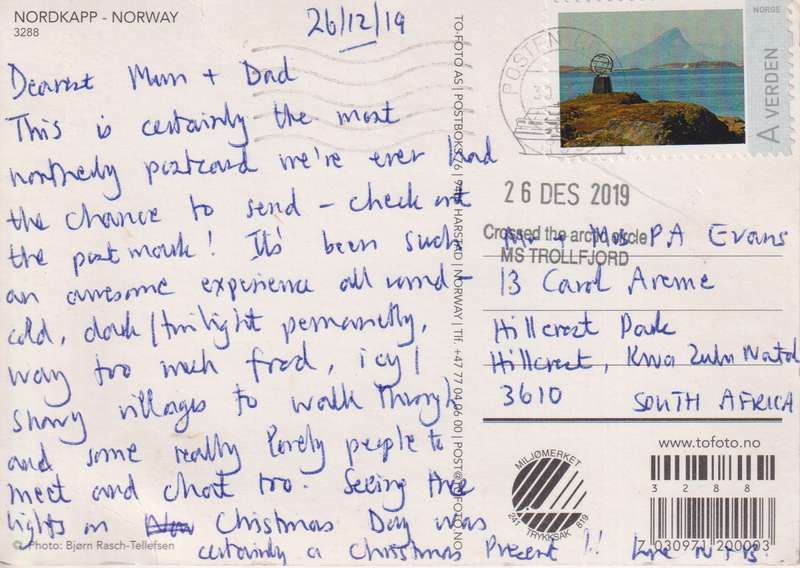 NORDKAPP - NORWAY
3288
26/12/19
Dearest Mum + Dad
This is certainly the most
northerly postcard we're ever had
the chance to send - check out
the postmark! It's been such
an awesome experience all round -
cold, dark/twilight permanently,
way too much food, icy/
snowy villages to walk through
and some really lovely people to
meet and chat too. Seeing the
lights on Christmas Day was
certainly a Christmas Present!! Love
© Photo: Bjørn Rasch-Tellefsen
TO-FOTO AS | POSTBOKS 76 | HARSTAD | NORWAY | Tlf. +47 77 04 06 00 | POST@TOFOTO.NO
POSTEN
NORGE
A VERDEN
26 DES 2019
Crossed the arctic circle
MS TROLLFJORD
Mr + Mrs PA Evans
13 Carol Avenue
Hillcrest Park
Hillcrest, Kwa Zulu Natal
3610 SOUTH AFRICA
MILJØMERKET
241 TRYKKSAK 819
www.tofoto.no
3 2 8 8
7 030971 200003